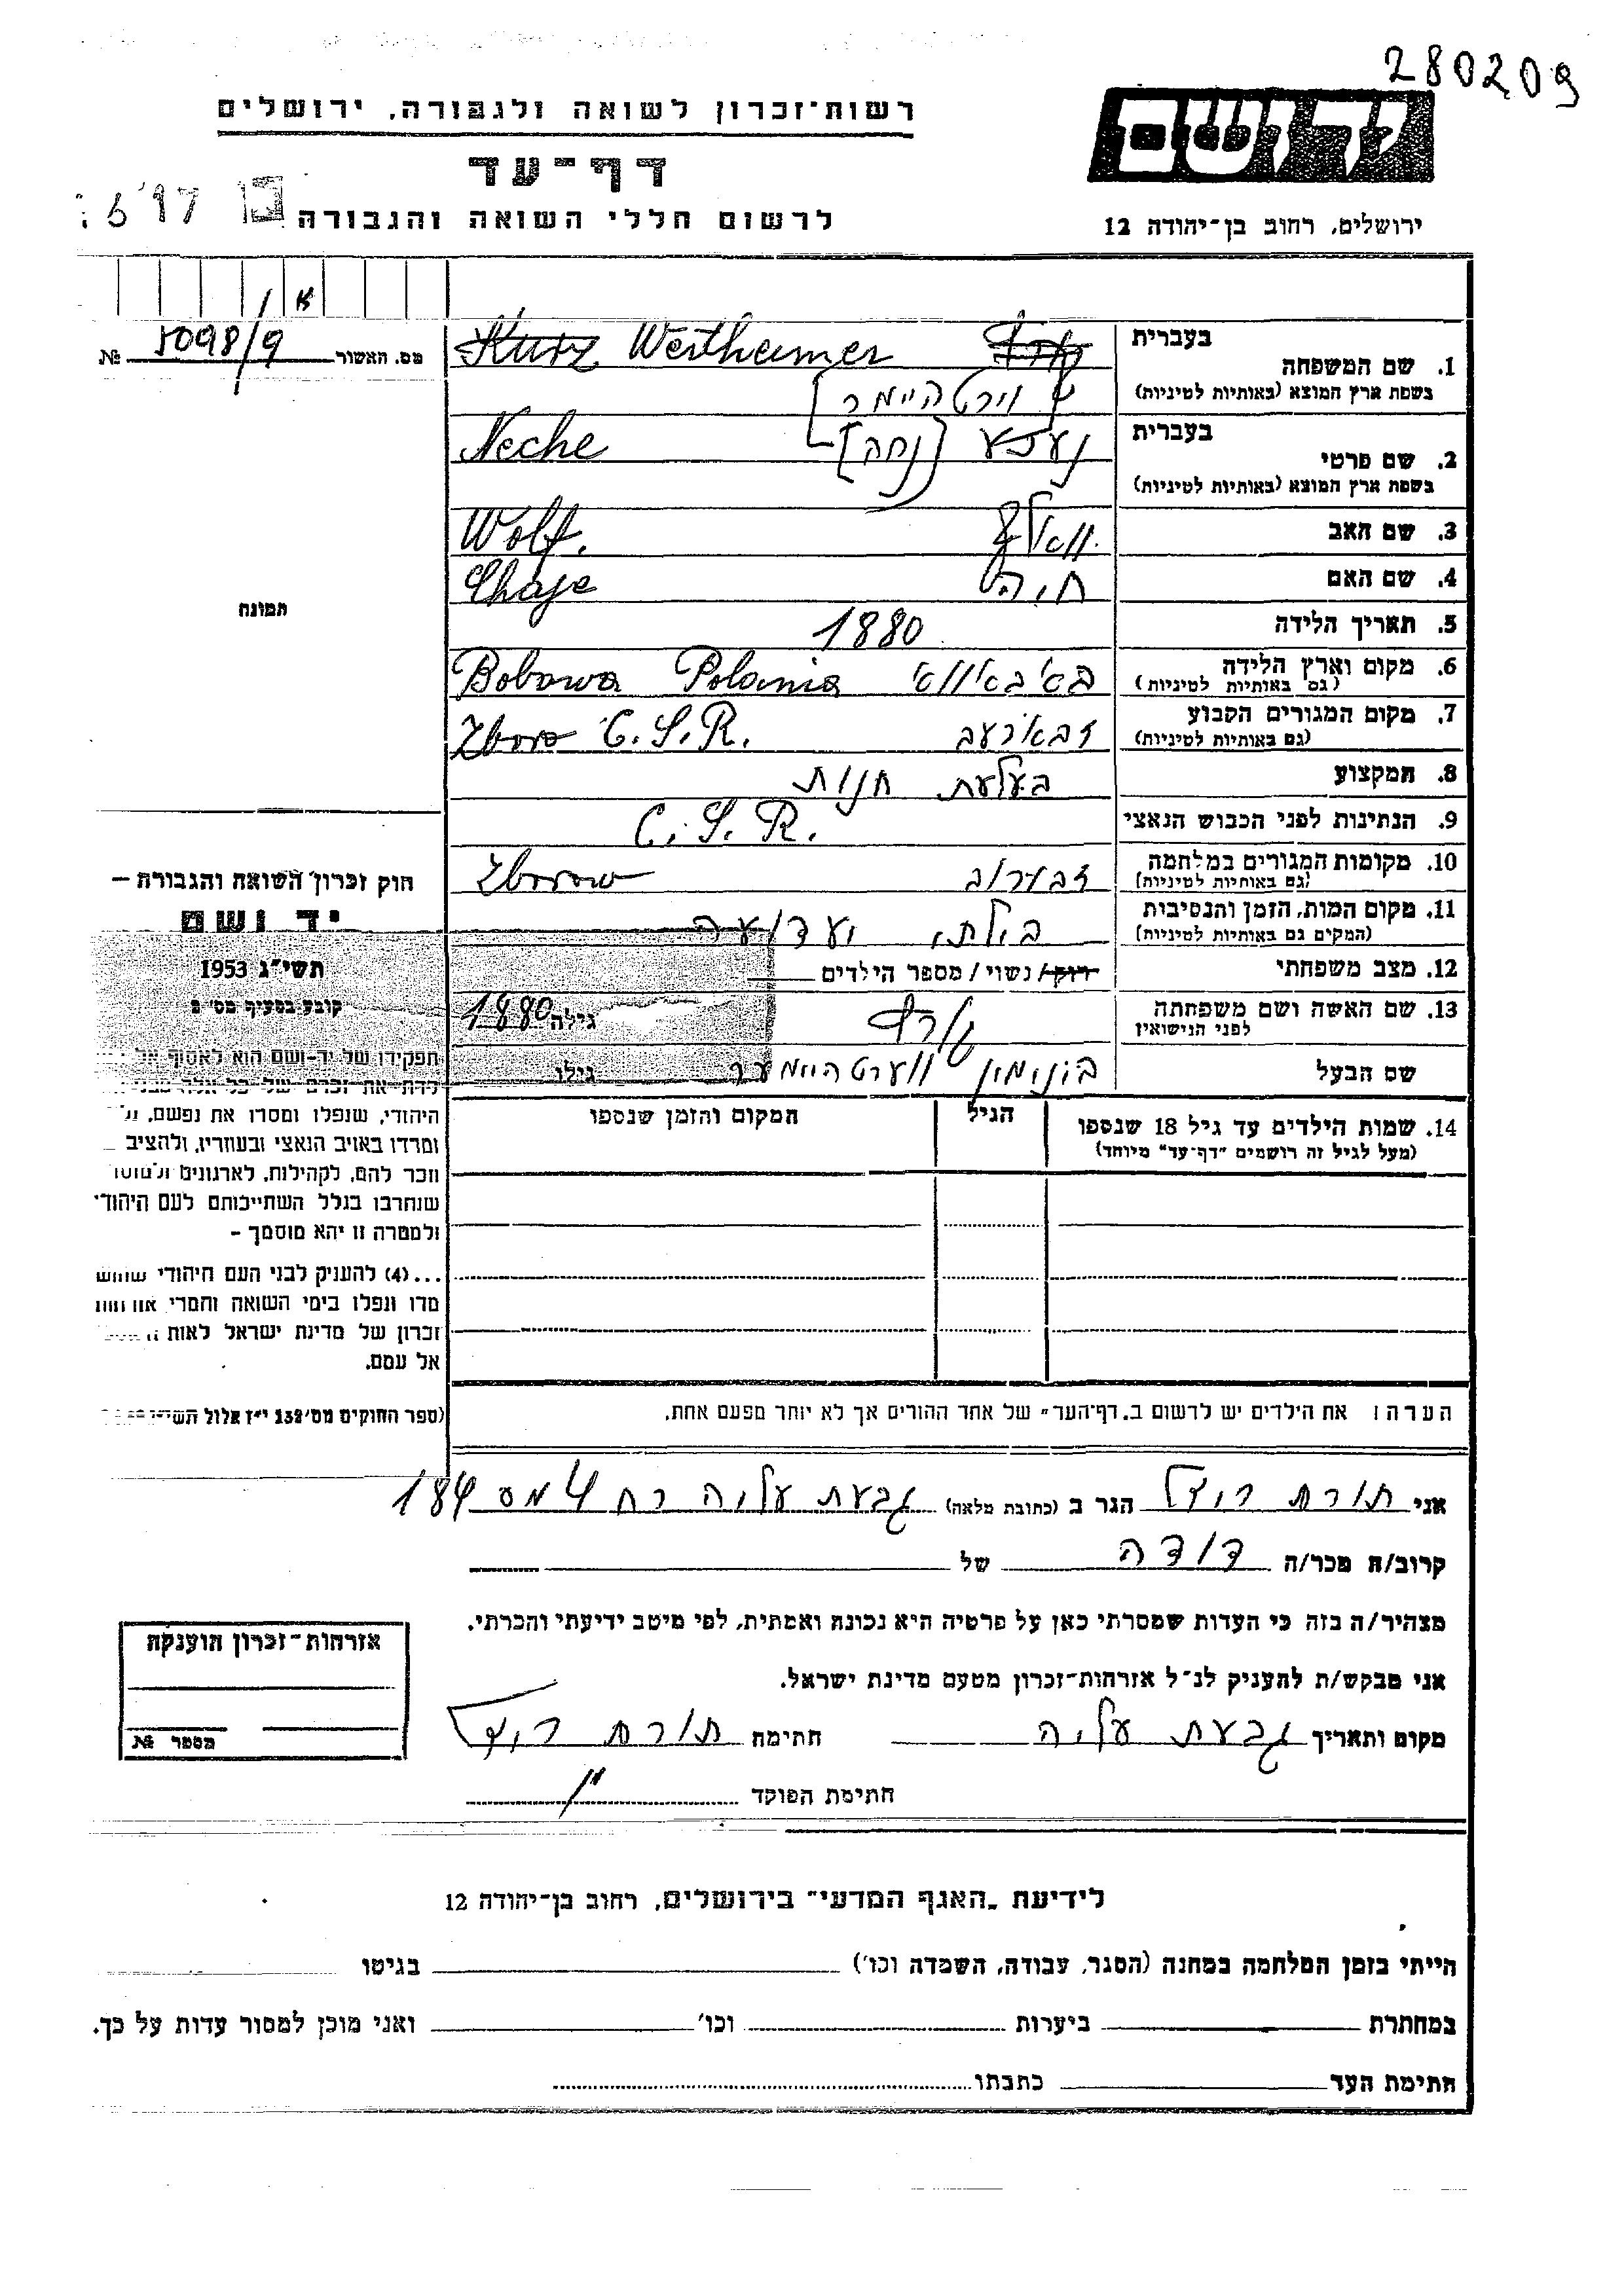 280209
ידושם
רשות־זכרון לשואה ולגבורה, ירושלים
דף־עד
לרשום חללי השואה והגבורה
ירושלים, רחוב בן־יהודה 12
6 '97
א
מס. האשור 5098/9 №
תמונה
חוק זכרון השואה והגבורה –
יד ושם
תשי״ג 1953
קובע בסעיף מס׳ 2
תפקידו של יד-ושם הוא לאסוף אל
היהודי, שנפלו ומסרו את נפשם,
ומרדו באויב הנאצי ובעוזריו, ולהציב
זכר להם, לקהילות, לארגונים ולמוסד
שנחרבו בגלל השתייכותם לעם היהודי
ולמטרה זו יהא מוסמך –
...(4) להעניק לבני העם היהודי
זכרון של מדינת ישראל לאות
אל עמם.
(ספר החוקים מס׳ 132 י״ז אלול
בעברית
1. שם המשפחה Kurz Wertheimer
בשפת ארץ המוצא (באותיות לטיניות) [ווירטהיימר
בעברית
2. שם פרטי [נחה] Neche
בשפת ארץ המוצא (באותיות לטיניות)
3. שם האב וואלף Wolf.
4. שם האם חיה Chaje
5. תאריך הלידה 1880
6. מקום וארץ הלידה באבאווא Bobowa Polania
(גם באותיות לטיניות)
7. מקום המגורים הקבוע זבארעב Zboro C.S.R.
(גם באותיות לטיניות)
8. המקצוע בעלת חנות
9. הנתינות לפני הכבוש הנאצי C.S.R.
10. מקומות המגורים במלחמה זבורוב Zborow
(גם באותיות לטיניות)
11. מקום המות, הזמן והנסיבות בילתי ידועה
(המקום גם באותיות לטיניות)
12. מצב משפחתי רוק/נשוי/מספר הילדים
13. שם האשה ושם משפחתה גילה 1880
לפני הנישואין
שם הבעל ווערטהיימער גילו
14. שמות הילדים עד גיל 18 שנספו הגיל המקום והזמן שנספו
(מעל לגיל זה רושמים "דף־עד" מיוחד)
הערה: את הילדים יש לרשום ב„דף־העד״ של אחד ההורים אך לא יותר מפעם אחת.
אני הגר ב (כתובת מלאה) גבעת עליה רח 4 מס 184
קרוב/ה מכר/ה דודה של
מצהיר/ה בזה כי העדות שמסרתי כאן על פרטיה היא נכונה ואמתית, לפי מיטב ידיעתי והכרתי.
אני מבקש/ת להעניק לנ״ל אזרחות־זכרון מטעם מדינת ישראל.
מקום ותאריך גבעת עליה חתימה
חתימת הפוקד
אזרחות־זכרון הוענקה
מספר №
לידיעת „האגף המדעי״ בירושלים, רחוב בן־יהודה 12
הייתי בזמן המלחמה במחנה (הסגר, עבודה, השמדה וכו׳) בגיטו
במחתרת ביערות וכו׳ ואני מוכן למסור עדות על כך.
חתימת העד כתבתו